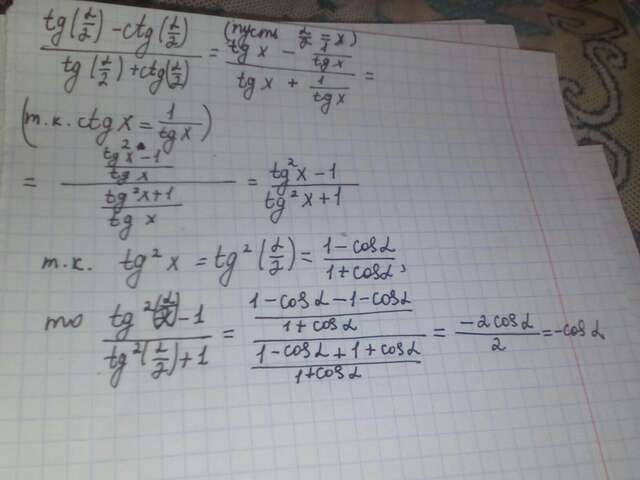 (tg(α/2) - ctg(α/2))/(tg(α/2) + ctg(α/2)) = (пусть α/2 = x) (tg x - 1/tg x)/(tg x + 1/tg x) =
(т.к. ctg x = 1/tg x)
= ((tg²x - 1)/tg x)/((tg²x + 1)/tg x) = (tg²x - 1)/(tg²x + 1)
т.к. tg²x = tg²(α/2) = (1 - cosα)/(1 + cosα),
то (tg²(α/2) - 1)/(tg²(α/2) + 1) = ((1 - cosα - 1 - cosα)/(1 + cosα))/((1 - cosα + 1 + cosα)/(1 + cosα)) = (-2cosα)/2 = -cosα